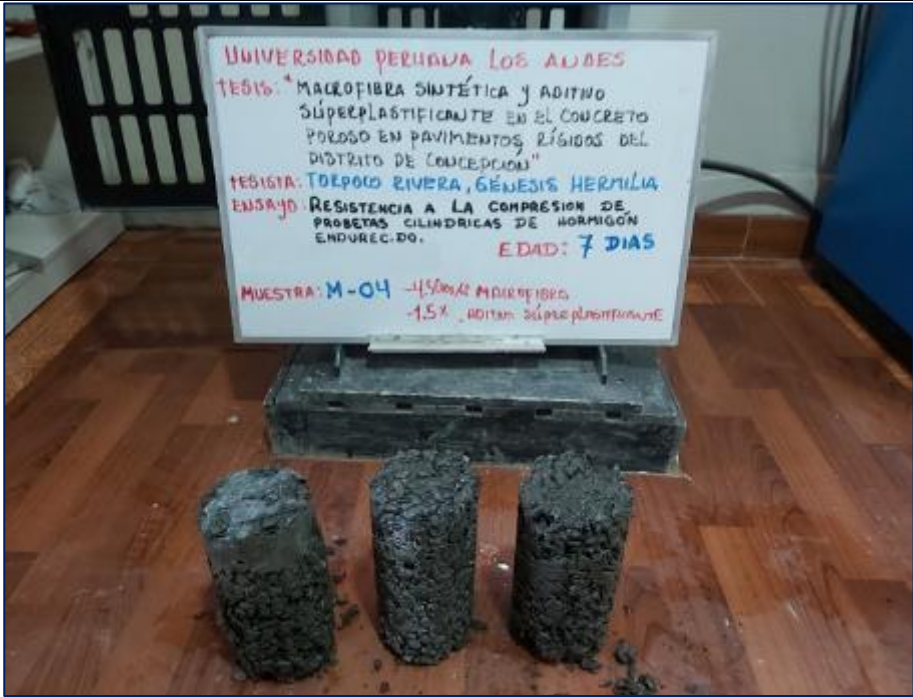 UNIVERSIDAD PERUANA LOS ANDES
TESIS: "MACROFIBRA SINTÉTICA Y ADITIVO
SÚPERPLASTIFICANTE EN EL CONCRETO
POROSO EN PAVIMENTOS RÍGIDOS DEL
DISTRITO DE CONCEPCIÓN"
TESISTA: TORPOCO RIVERA, GÉNESIS HERMILIA
ENSAYO: RESISTENCIA A LA COMPRESION DE
PROBETAS CILINDRICAS DE HORMIGÓN
ENDURECIDO.
EDAD: 7 DIAS
MUESTRA: M-04 - MACROFIBRA
-1.5% ADITIVO SÚPERPLASTIFICANTE